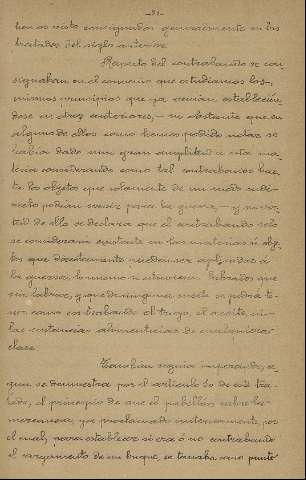 -31-
hemos visto consignados generalmente en los
tratados del siglo anterior.
Respecto del contrabando se con
signaban en el convenio que estudiamos los
mismos principios que ya venian establecien
dose en otros anteriores, - no obstante que en
algunos de ellos como hemos podido notar se
habia dado una gran amplitud a esta ma
teria considerando como tal contrabando has
ta los objetos que solamente de un modo indi
recto podian servir para la guerra, - y en vir
tud de ello se declara que el contrabando solo
se considerara existente en las materias ú obje
tos que directamente puedan ser aplicados á
la guerra, lo mismo si estuvieran labrados que
sin labrar, y que de ninguna suerte se podrá te
ner como contrabando el trigo, el aceite, ni
las sustancias alimenticias de cualquiera
clase.
Tambien seguia imperando, se
gun se demuestra por el articulo de este tra
tado, el principio de que el pabellon cubre la
mercancia, ya proclamado anteriormente, por
el cual, para establecer si era ó no contrabando
el cargamento de un buque, se tomaba como punto